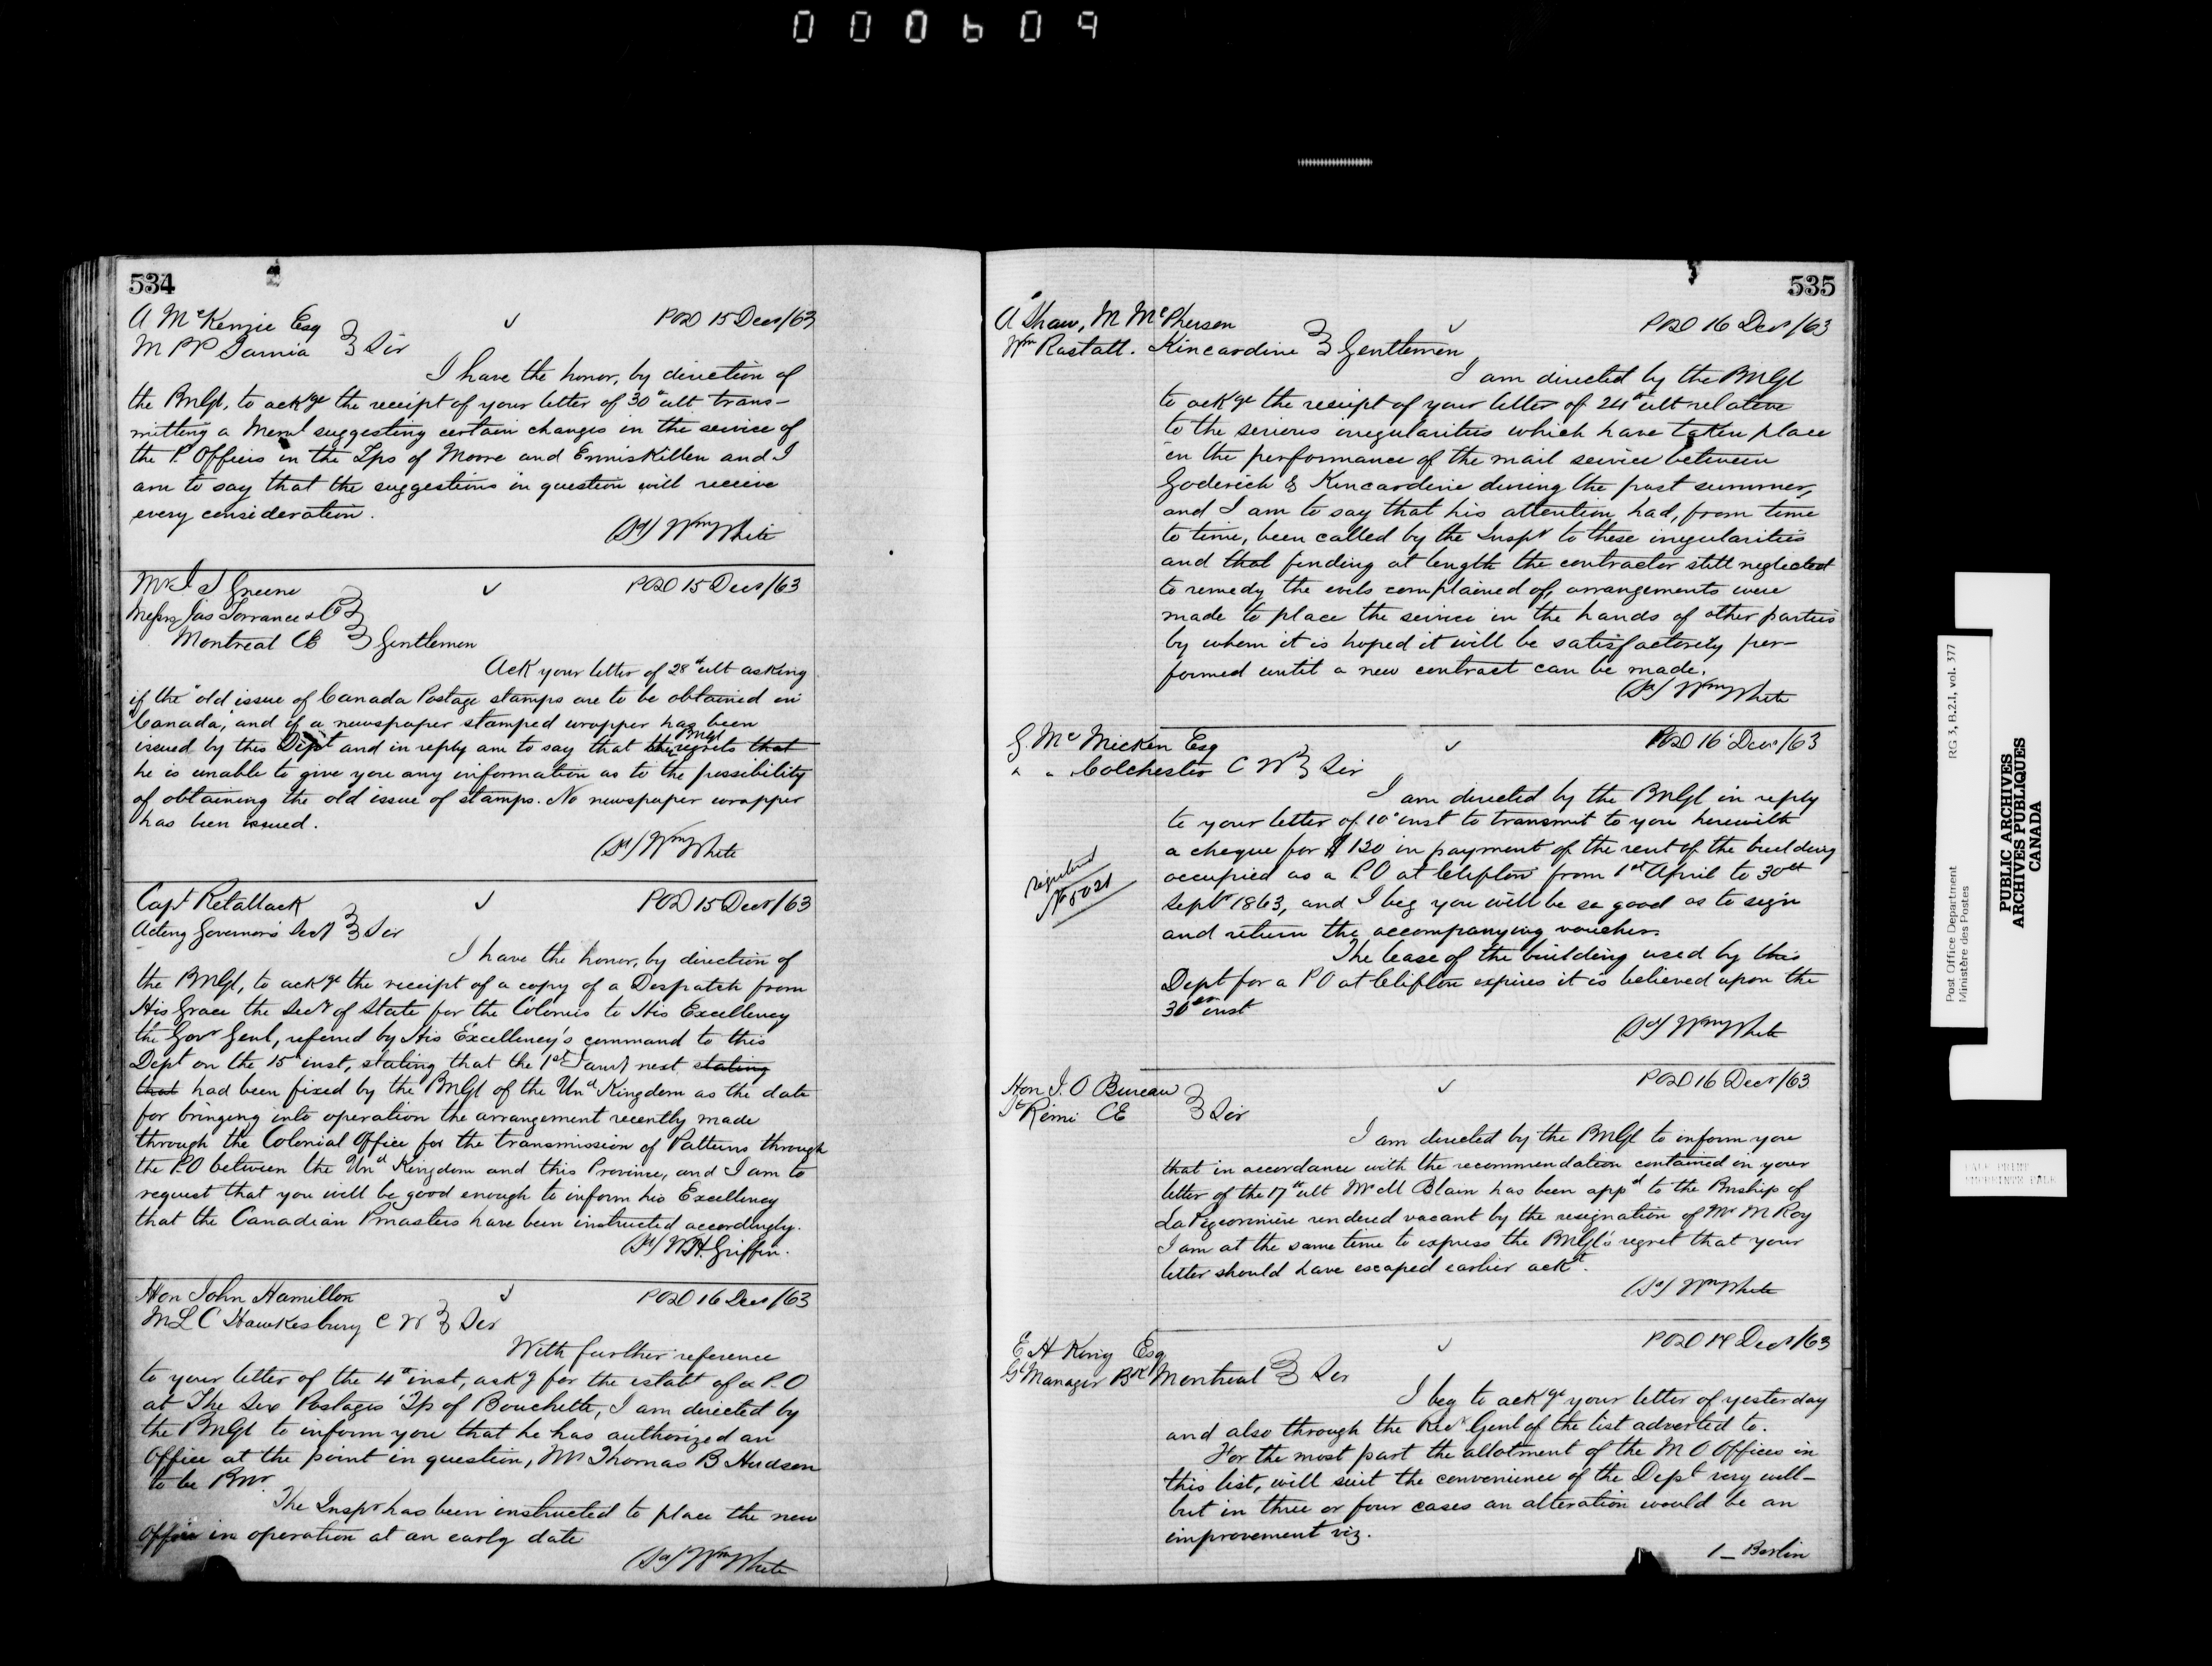 000609
534
A McKenzie Esq
MPP Sarnia } Sir
POD 15 Decr/63
I have the honor, by direction of
the PMGl, to ackge the receipt of your letter of 30th ult trans-
mitting a Meml suggesting certain changes in the service of
the P. Offices in the Tps of Moore and Enniskillen and I
am to say that the suggestions in question will receive
every consideration.
(Sd) Wm White
Mr J S Greene
Messrs Jas Torrance & Co
Montreal CE } Gentlemen
POD 15 Decr/63
Ack your letter of 28th ult asking
if the "old issue of Canada Postage stamps are to be obtained in
Canada, and if a newspaper stamped wrapper has been
issued by this Dept and in reply am to say that the PMGl regrets that
he is unable to give you any information as to the possibility
of obtaining the old issue of stamps. No newspaper wrapper
has been issued.
(Sd) Wm White
Capt Retallack
Acting Governor's Secy } Sir
POD 15 Decr/63
I have the honor, by direction of
the PMGl, to ackge the receipt of a copy of a Despatch from
His Grace the Secy of State for the Colonies to His Excellency
the Govr Genl, referred by His Excellency's command to this
Dept on the 15th inst, stating that the 1st Jany next stating
that had been fixed by the PMGl of the Und Kingdom as the date
for bringing into operation the arrangement recently made
through the Colonial Office for the transmission of Patterns through
the PO between the Und Kingdom and this Province, and I am to
request that you will be good enough to inform his Excellency
that the Canadian Pmasters have been instructed accordingly.
(Sd) W.H. Griffin.
Hon John Hamilton
MLC Hawkesbury CW } Sir
POD 16 Decr/63
With further reference
to your letter of the 4th inst, askg for the estabt of a P.O
at The Six Portages Tp of Bouchette, I am directed by
the PMGl to inform you that he has authorized an
Office at the point in question, Mr Thomas B Hudson
to be PMr.
The Inspr has been instructed to place the new
Office in operation at an early date
(Sd) Wm White
535
A Shaw, M McPherson
Wm Rastall. Kincardine } Gentlemen
POD 16 Decr/63
I am directed by the PMGl
to ackge the receipt of your letter of 24th ult relative
to the serious irregularities which have taken place
in the performance of the mail service between
Goderich & Kincardine during the past summer,
and I am to say that his attention had, from time
to time, been called by the Inspr to these irregularities
and that finding at length the contractor still neglected
to remedy the evils complained of, arrangements were
made to place the service in the hands of other parties
by whom it is hoped it will be satisfactorily per-
formed until a new contract can be made.
(Sd) Wm White
G. McMicken Esq
" " Colchester CW } Sir
POD 16 Decr/63
I am directed by the PMGl in reply
to your letter of 10th inst to transmit to you herewith
a cheque for $120 in payment of the rent of the building
occupied as a PO at Clifton from 1st April to 30th
Septr 1863, and I beg you will be so good as to sign
and return the accompanying voucher.
Registered
No 5021
The lease of the building used by this
Dept for a PO at Clifton expires it is believed upon the
30th inst
(Sd) Wm White
Hon J. O Bureau
St Rémi CE } Sir
POD 16 Decr/63
I am directed by the PMGl to inform you
that in accordance with the recommendation contained in your
letter of the 17th ult Mr M Blain has been appd to the Pmship of
La Pigeonnière rendered vacant by the resignation of Mr M Roy
I am at the same time to express the PMGl's regret that your
letter should have escaped earlier ackt.
(Sd) Wm White
E H King Esq
Gl Manager Bk Montreal } Sir
POD Decr/63
I beg to ackge your letter of yesterday
and also through the Recr Genl of the list adverted to.
For the most part the allotment of the M O Offices in
this list, will suit the convenience of the Dept very well-
but in three or four cases an alteration would be an
improvement viz.
1 – Berlin
Post Office Department
Ministère des Postes
RG 3, B.2.1, vol. 377
PUBLIC ARCHIVES
ARCHIVES PUBLIQUES
CANADA